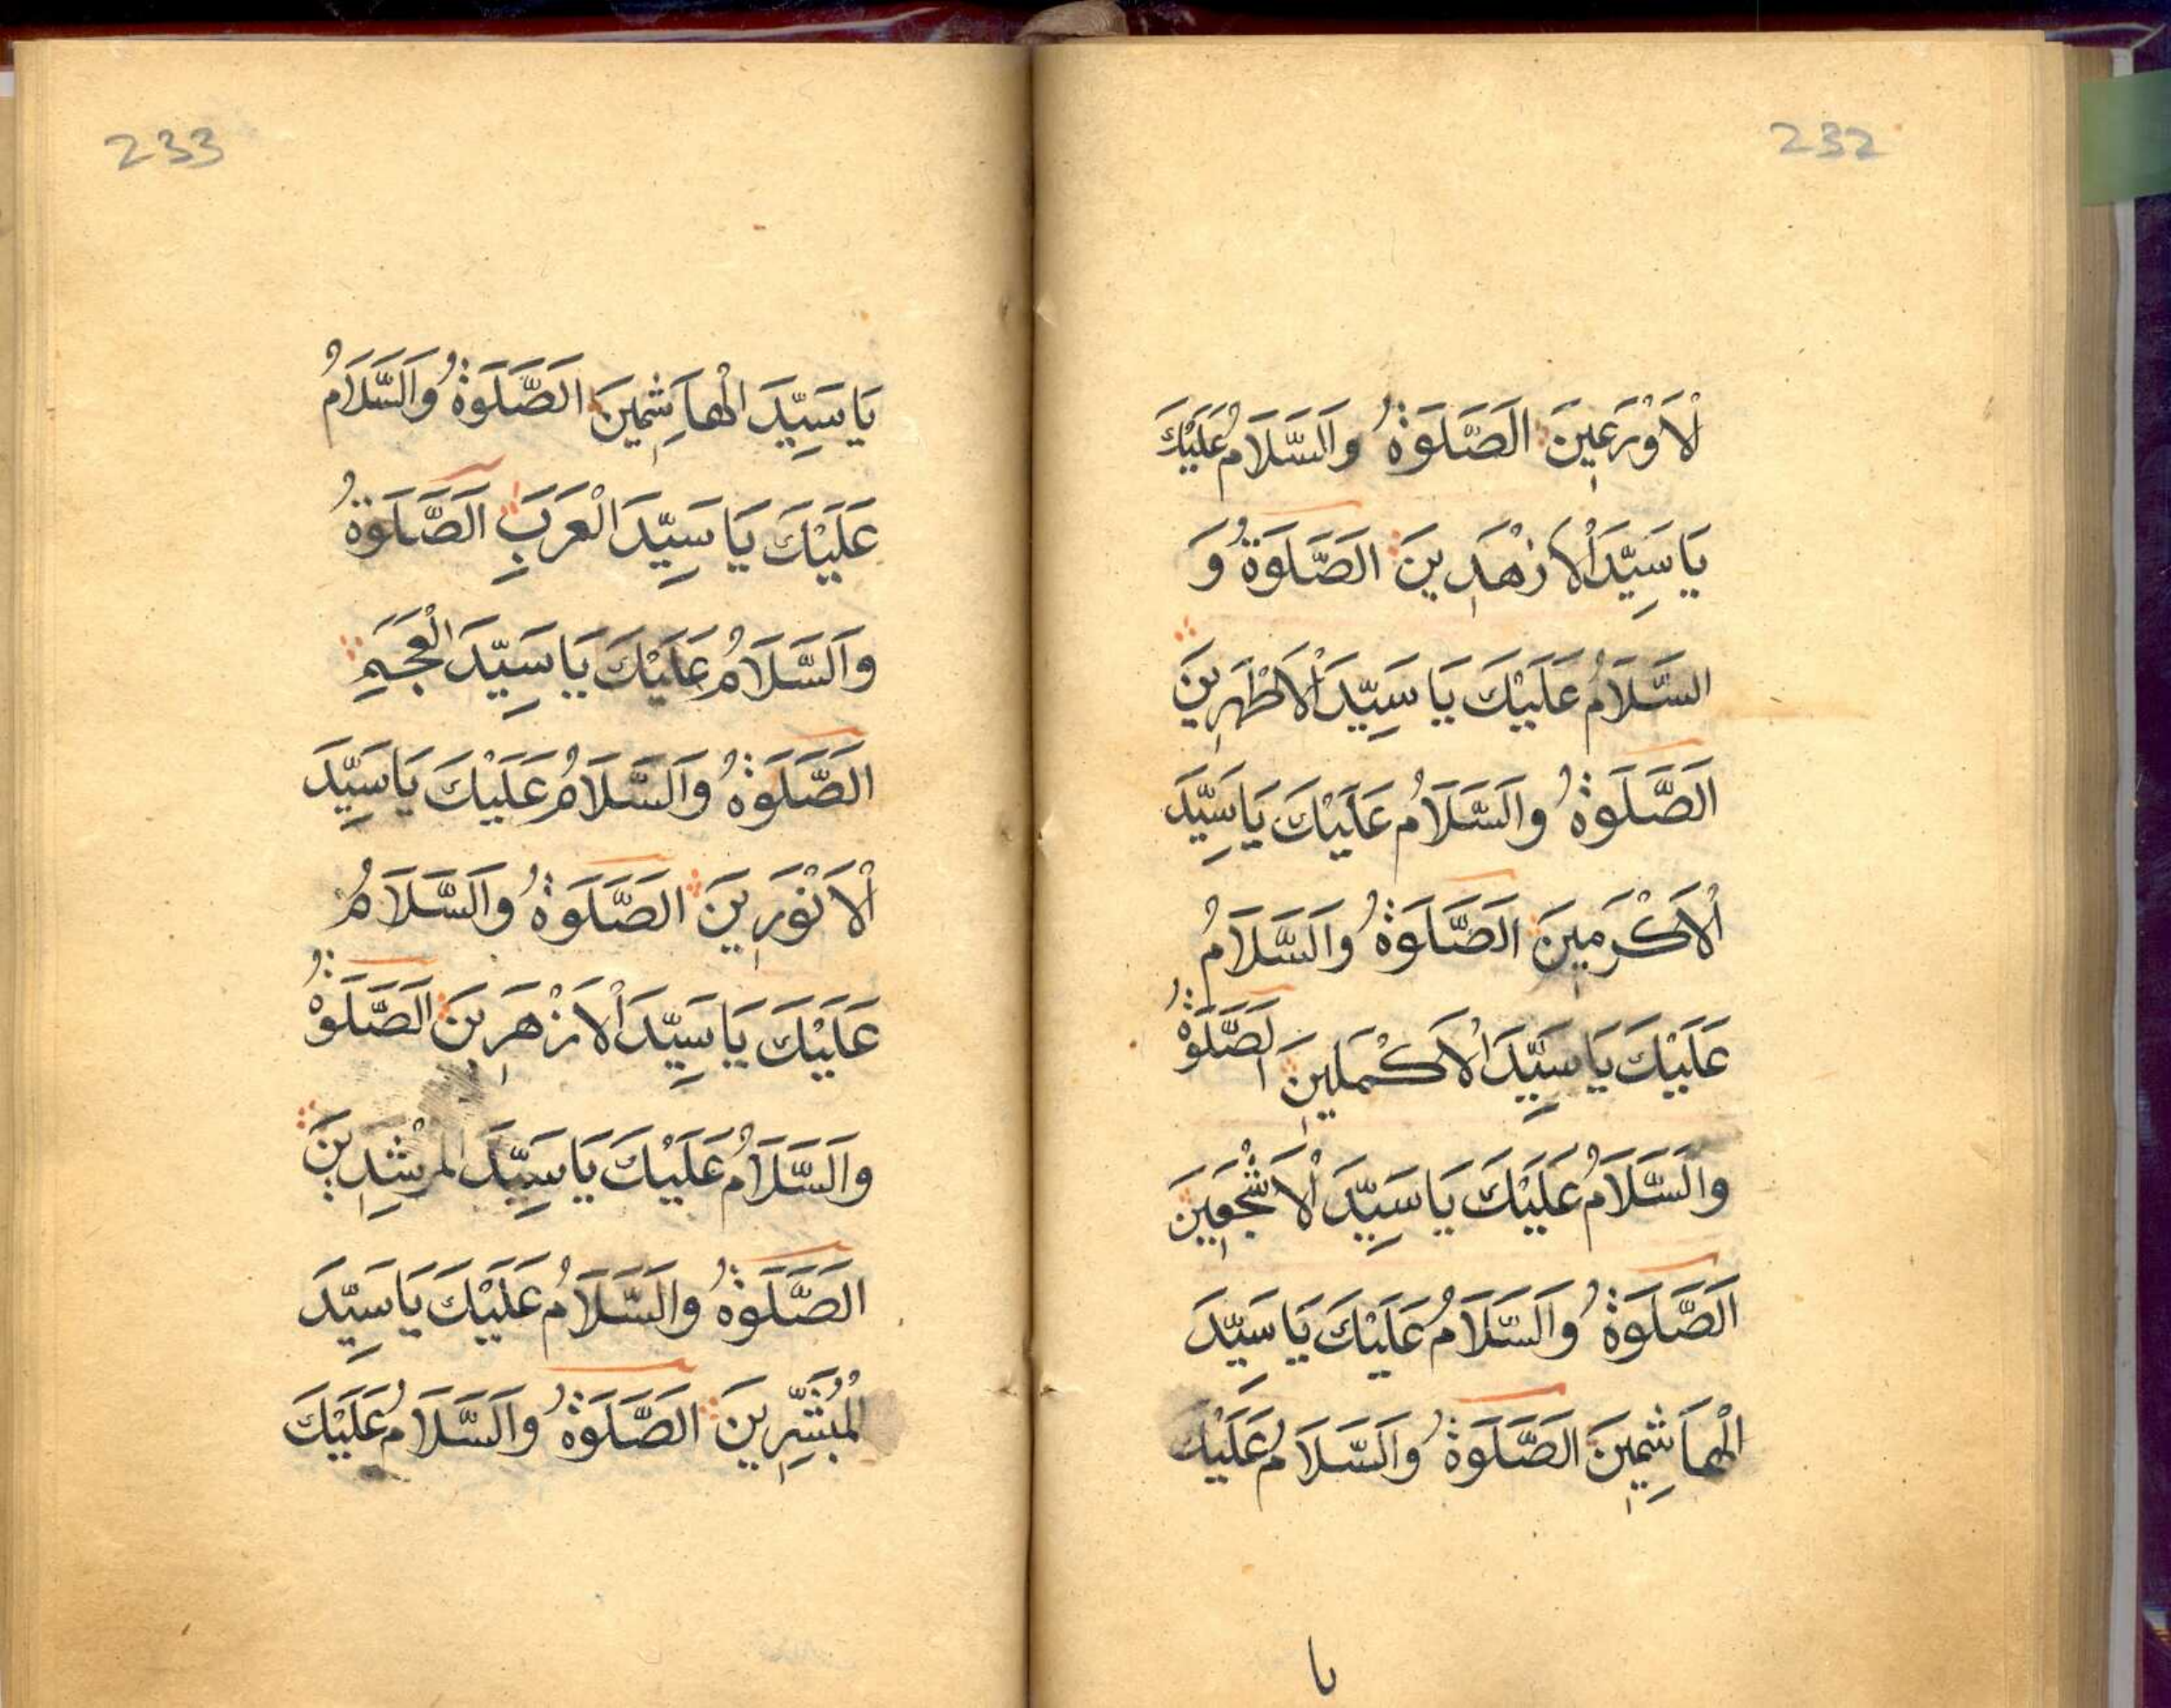 232
لْاَوْرَعِينَ الَصَّلَوٰةُ وَالسَّلَامُ عَلَيْكَ
يَا سَيِّدَ الْاَزْهَدِينَ الَصَّلَوٰةُ وَ
السَّلَامُ عَلَيْكَ يَا سَيِّدَ الْاَطْهَرِينَ
الَصَّلَوٰةُ وَالسَّلَامُ عَلَيْكَ يَا سَيِّدَ
الْاَكْرَمِينَ الَصَّلَوٰةُ وَالسَّلَامُ
عَلَيْكَ يَا سَيِّدَ الْاَكْمَلِينَ الَصَّلَوٰةُ
وَالسَّلَامُ عَلَيْكَ يَا سَيِّدَ الْاَشْجَعِينَ
الَصَّلَوٰةُ وَالسَّلَامُ عَلَيْكَ يَا سَيِّدَ
الْهَاشِمِينَ الَصَّلَوٰةُ وَالسَّلَامُ عَلَيْكَ
يا
233
يَا سَيِّدَ الْهَاشِمِينَ الَصَّلَوٰةُ وَالسَّلَامُ
عَلَيْكَ يَا سَيِّدَ الْعَرَبِ الَصَّلَوٰةُ
وَالسَّلَامُ عَلَيْكَ يَا سَيِّدَ الْعَجَمِ
الَصَّلَوٰةُ وَالسَّلَامُ عَلَيْكَ يَا سَيِّدَ
الْاَنْوَرِينَ الَصَّلَوٰةُ وَالسَّلَامُ
عَلَيْكَ يَا سَيِّدَ الْاَزْهَرِينَ الَصَّلَوٰةُ
وَالسَّلَامُ عَلَيْكَ يَا سَيِّدَ الْمُرْشِدِينَ
الَصَّلَوٰةُ وَالسَّلَامُ عَلَيْكَ يَا سَيِّدَ
الْمُبَشِّرِينَ الَصَّلَوٰةُ وَالسَّلَامُ عَلَيْكَ